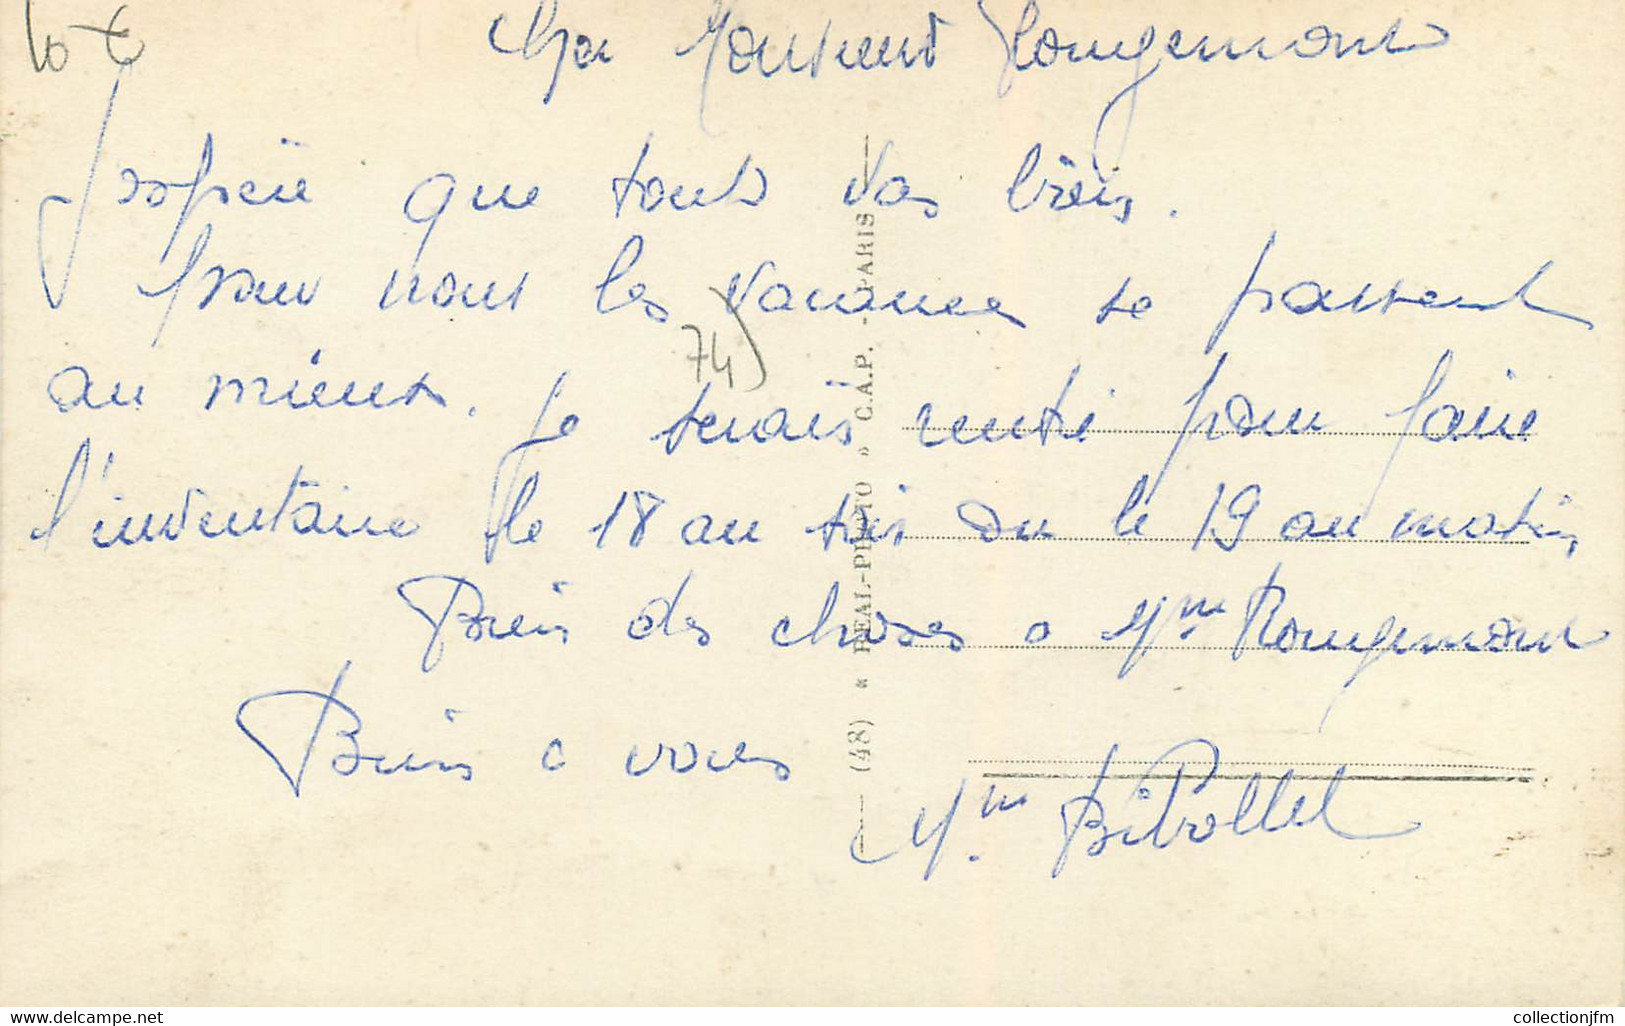 10 €
Cher Monsieur Rougemont
J'espère que tout va bien.
Pour nous les vacances se passent
74)
au mieux. Je serais rentré pour faire
l'inventaire le 18 au soir ou le 19 au matin
Bien des choses a Mme Rougemont
Bien a vous
Mme Bibollet
(48) « REAL-PHOTO » C.A.P. - PARIS
www.delcampe.net
collectionjfm